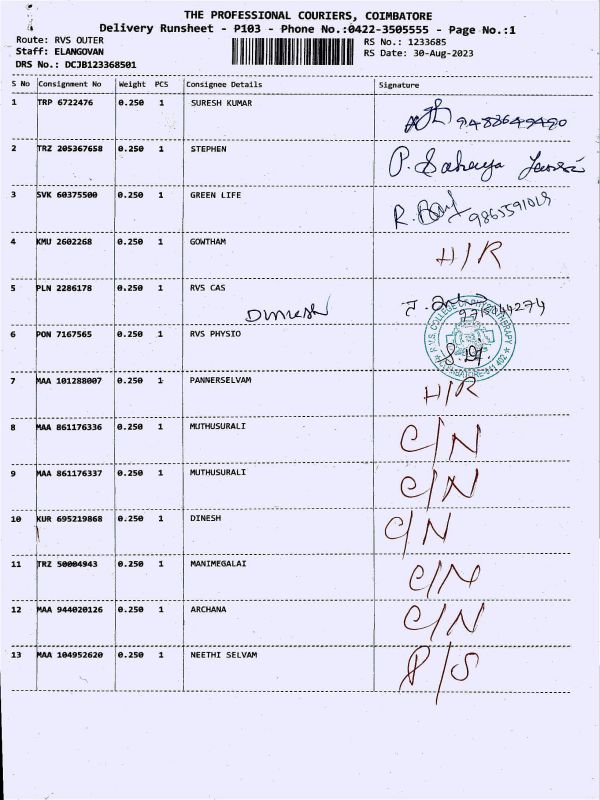 THE PROFESSIONAL COURIERS, COIMBATORE
Delivery Runsheet - P103 - Phone No.:0422-3505555 - Page No.:1
Route: RVS OUTER RS No.: 1233685
Staff: ELANGOVAN RS Date: 30-Aug-2023
DRS No.: DCJB123368501
S No Consignment No Weight PCS Consignee Details Signature
1 TRP 6722476 0.250 1 SURESH KUMAR
9488649490
2 TRZ 205367658 0.250 1 STEPHEN
P. Sahaya
3 SVK 60375500 0.250 1 GREEN LIFE
R.
4 KMU 2602268 0.250 1 GOWTHAM H/R
5 PLN 2286178 0.250 1 RVS CAS
Dinesh
6 PON 7167565 0.250 1 RVS PHYSIO
R.V.S. COLLEGE OF PHYSIOTHERAPY
7 MAA 101288007 0.250 1 PANNERSELVAM H/R
8 MAA 861176336 0.250 1 MUTHUSURALI C/N
9 MAA 861176337 0.250 1 MUTHUSURALI C/N
10 KUR 695219868 0.250 1 DINESH C/N
11 TRZ 50004943 0.250 1 MANIMEGALAI C/N
12 MAA 944020126 0.250 1 ARCHANA C/N
13 MAA 104952620 0.250 1 NEETHI SELVAM P/S